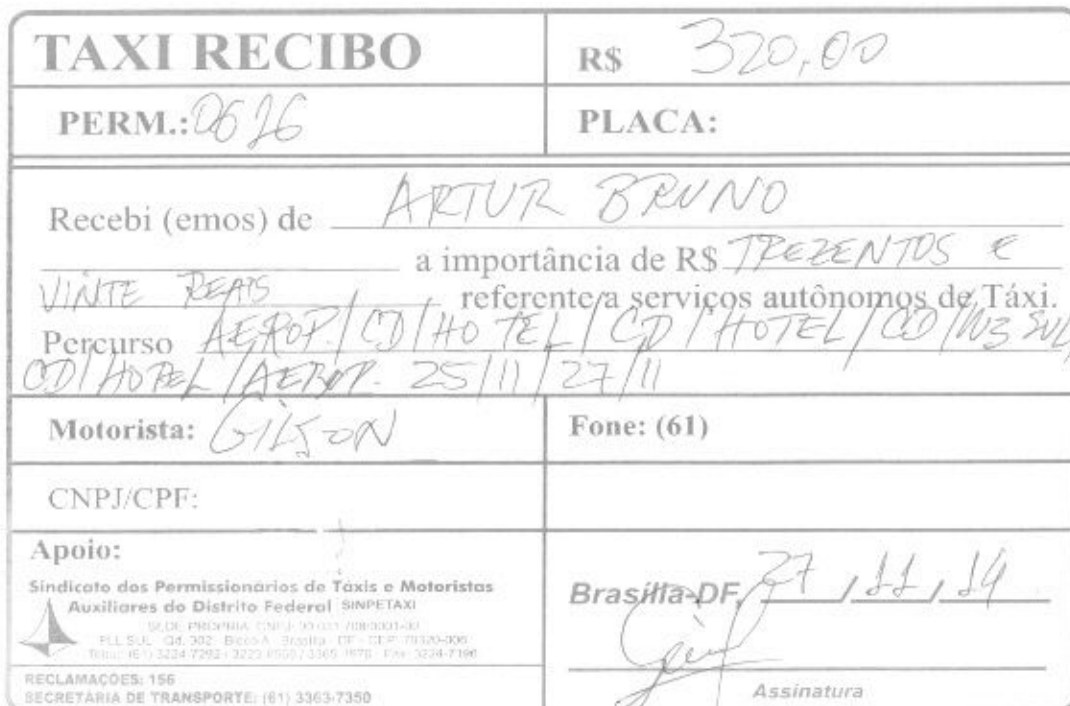 TAXI RECIBO
R$ 320,00
PERM.: 0626
PLACA:
Recebi (emos) de ARTUR BRUNO
a importância de R$ TREZENTOS E
VINTE REAIS referente a serviços autônomos de Táxi.
Percurso AEROP. / CD / HOTEL / CD / HOTEL / CD / W3 SUL/
CD / HOTEL / AEROP. 25/11 / 27/11
Motorista: GILSON
Fone: (61)
CNPJ/CPF:
Apoio:
Sindicato dos Permissionários de Táxis e Motoristas
Auxiliares do Distrito Federal SINPETAXI
SEDE PRÓPRIA CNPJ
PLL SUL - Qd. 302 - Bloco A - Brasília - DF - CEP
(61) 3224-7292 Fax: 3224-7396
RECLAMAÇÕES: 156
SECRETARIA DE TRANSPORTE: (61) 3363-7350
Brasília-DF, 27 / 11 / 14
Assinatura